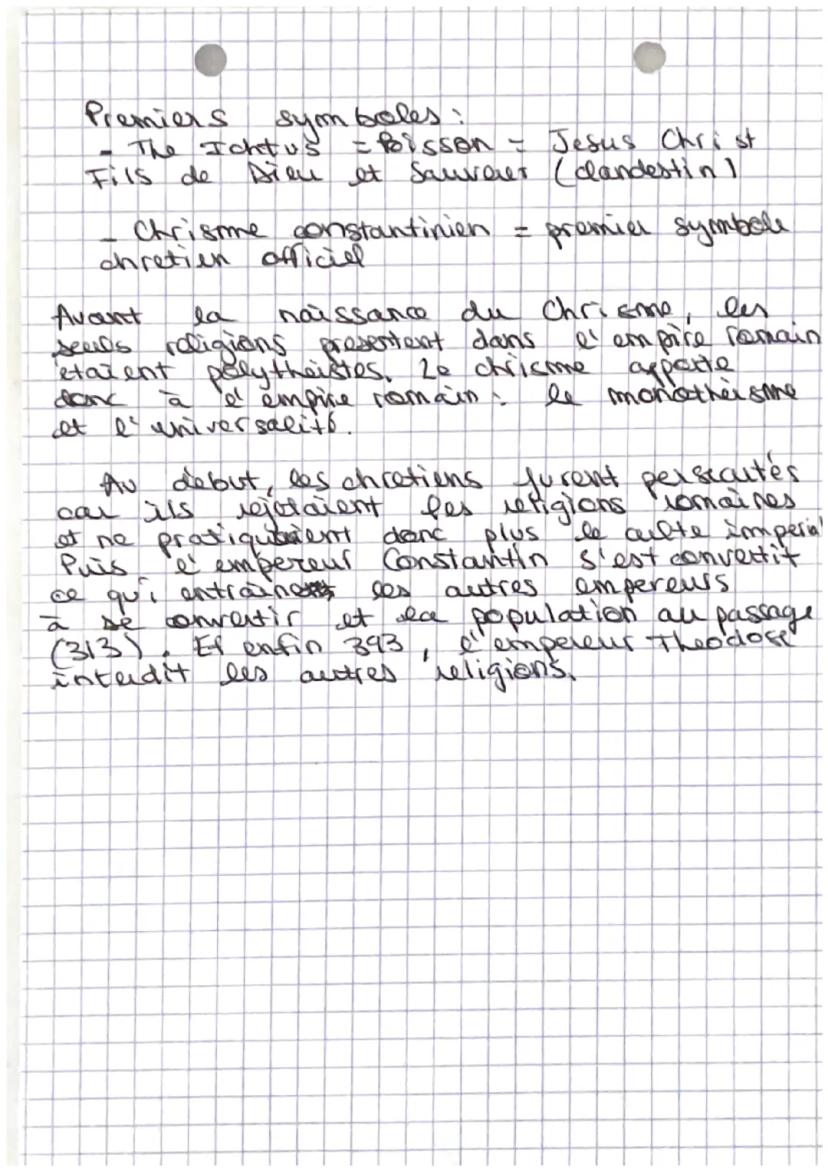 Premiers symboles :
- The Ichtus = Poisson = Jesus Christ
Fils de Dieu et Sauveur (clandestin)
- Chrisme constantinien = premier symbole
chretien officiel
Avant la naissance du Chrisme, les
seuls religions presentent dans l'empire romain
étaient polythéistes. Le chrisme apporte
donc à l'empire romain : le monothéisme
et l'universalité.
Au debut, les chretiens furent persecutés
car ils rejetaient les religions romaines
et ne pratiquaient donc plus le culte imperial
Puis l'empereur Constantin s'est convertit
ce qui entraine les autres empereurs
à se convertir et la population au passage
(313). Et enfin 393, l'empereur Theodose
interdit les autres religions.